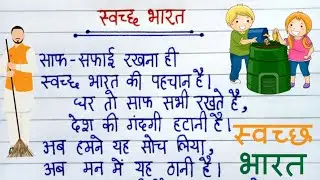 स्वच्छ भारत
साफ-सफाई रखना ही
स्वच्छ भारत की पहचान है।
घर तो साफ सभी रखते है,
देश की गंदगी हटानी है।
अब हमने यह सोच लिया,
अब मन में यह ठानी है।
स्वच्छ
भारत